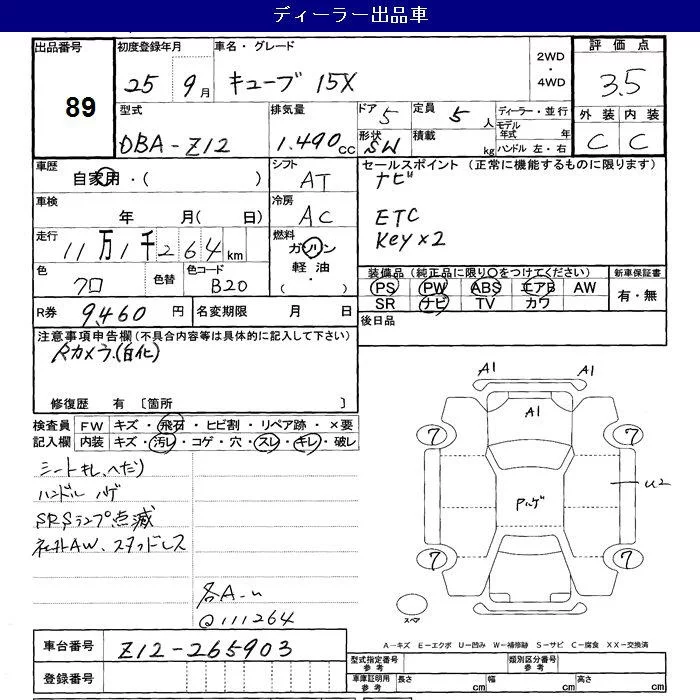 ディーラー出品車
出品番号 初度登録年月 車名・グレード 2WD ・ 4WD 評価点
89 25 9月 キューブ 15X 3.5
型式 排気量 ドア 5 定員 5人 ディーラー・並行 外装 内装
DBA-Z12 1.490cc 形状 SW 積載 kg モデル年式 年 ハンドル 左・右 C C
車歴 自家用・( ) シフト AT セールスポイント (正常に機能するものに限ります)
ナビ
車検 年 月( 日) 冷房 AC ETC
走行 11万1千264km 燃料 ガソリン 軽油 ( ・ ) Key×2
色 クロ 色替 色コード B20 装備品 (純正品に限り○をつけてください) 新車保証書
PS PW ABS エアB AW 有・無
SR ナビ TV カワ
R券 9,460円 名変期限 月 日 後日品
注意事項申告欄 (不具合内容等は具体的に記入して下さい)
Rカメラ.(白化)
修復歴 有 [箇所 ]
検査員 FW キズ・飛石・ヒビ割・リペア跡・×要
記入欄 内装 キズ・汚レ・コゲ・穴・スレ・キレ・破レ
シートキレ、ヘたり
ハンドル ハゲ
SRSランプ点滅
社外AW、スタッドレス
各A-u
@111264
A1 A1
A1
7 7
U2
Pハゲ
7 7
スペア
A―キズ E―エクボ U―凹み W―補修跡 S―サビ C―腐食 XX―交換済
車台番号 Z12-265903
型式指定番号 参考 類別区分番号 参考
登録番号 車庫証明用 参考 長さ cm 幅 cm 高さ cm